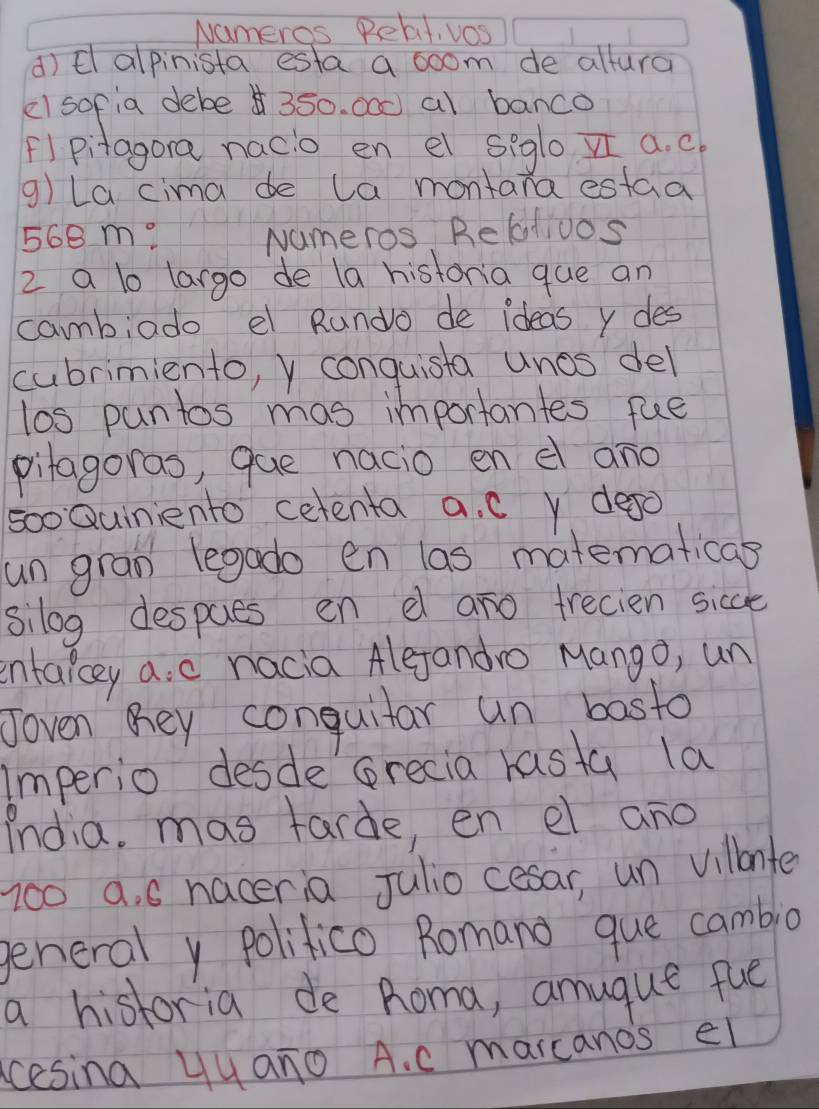 Nameros Relat.vos
d) El alpinista esta a 600m de altura
e) sofia debe $ 350.000 al banco
F) pitagora nacio en el siglo VI a.c.
g) La cima de la montaña estaa
568 m: Nameros Relativos
2 a lo largo de la historia que an
cambiado el Rundo de ideas y des
cubrimiento, y conquista unos del
los puntos mas importantes fue
pitagoras, que nacio en el año
500 Quiniento cetenta a.c y dejo
un gran legado en las matematicas
silog despues en el año trecien
entaicey a.c nacia Alejandro Mango, un
Joven Rey conquitar un basto
imperio desde Grecia hasta la
india. mas tarde, en el año
100 a.c naceria Julio cesar, un villante
general y politico Romano que cambio
a historia de Roma, amuque fue
cesina 44 año A.C marcanos el